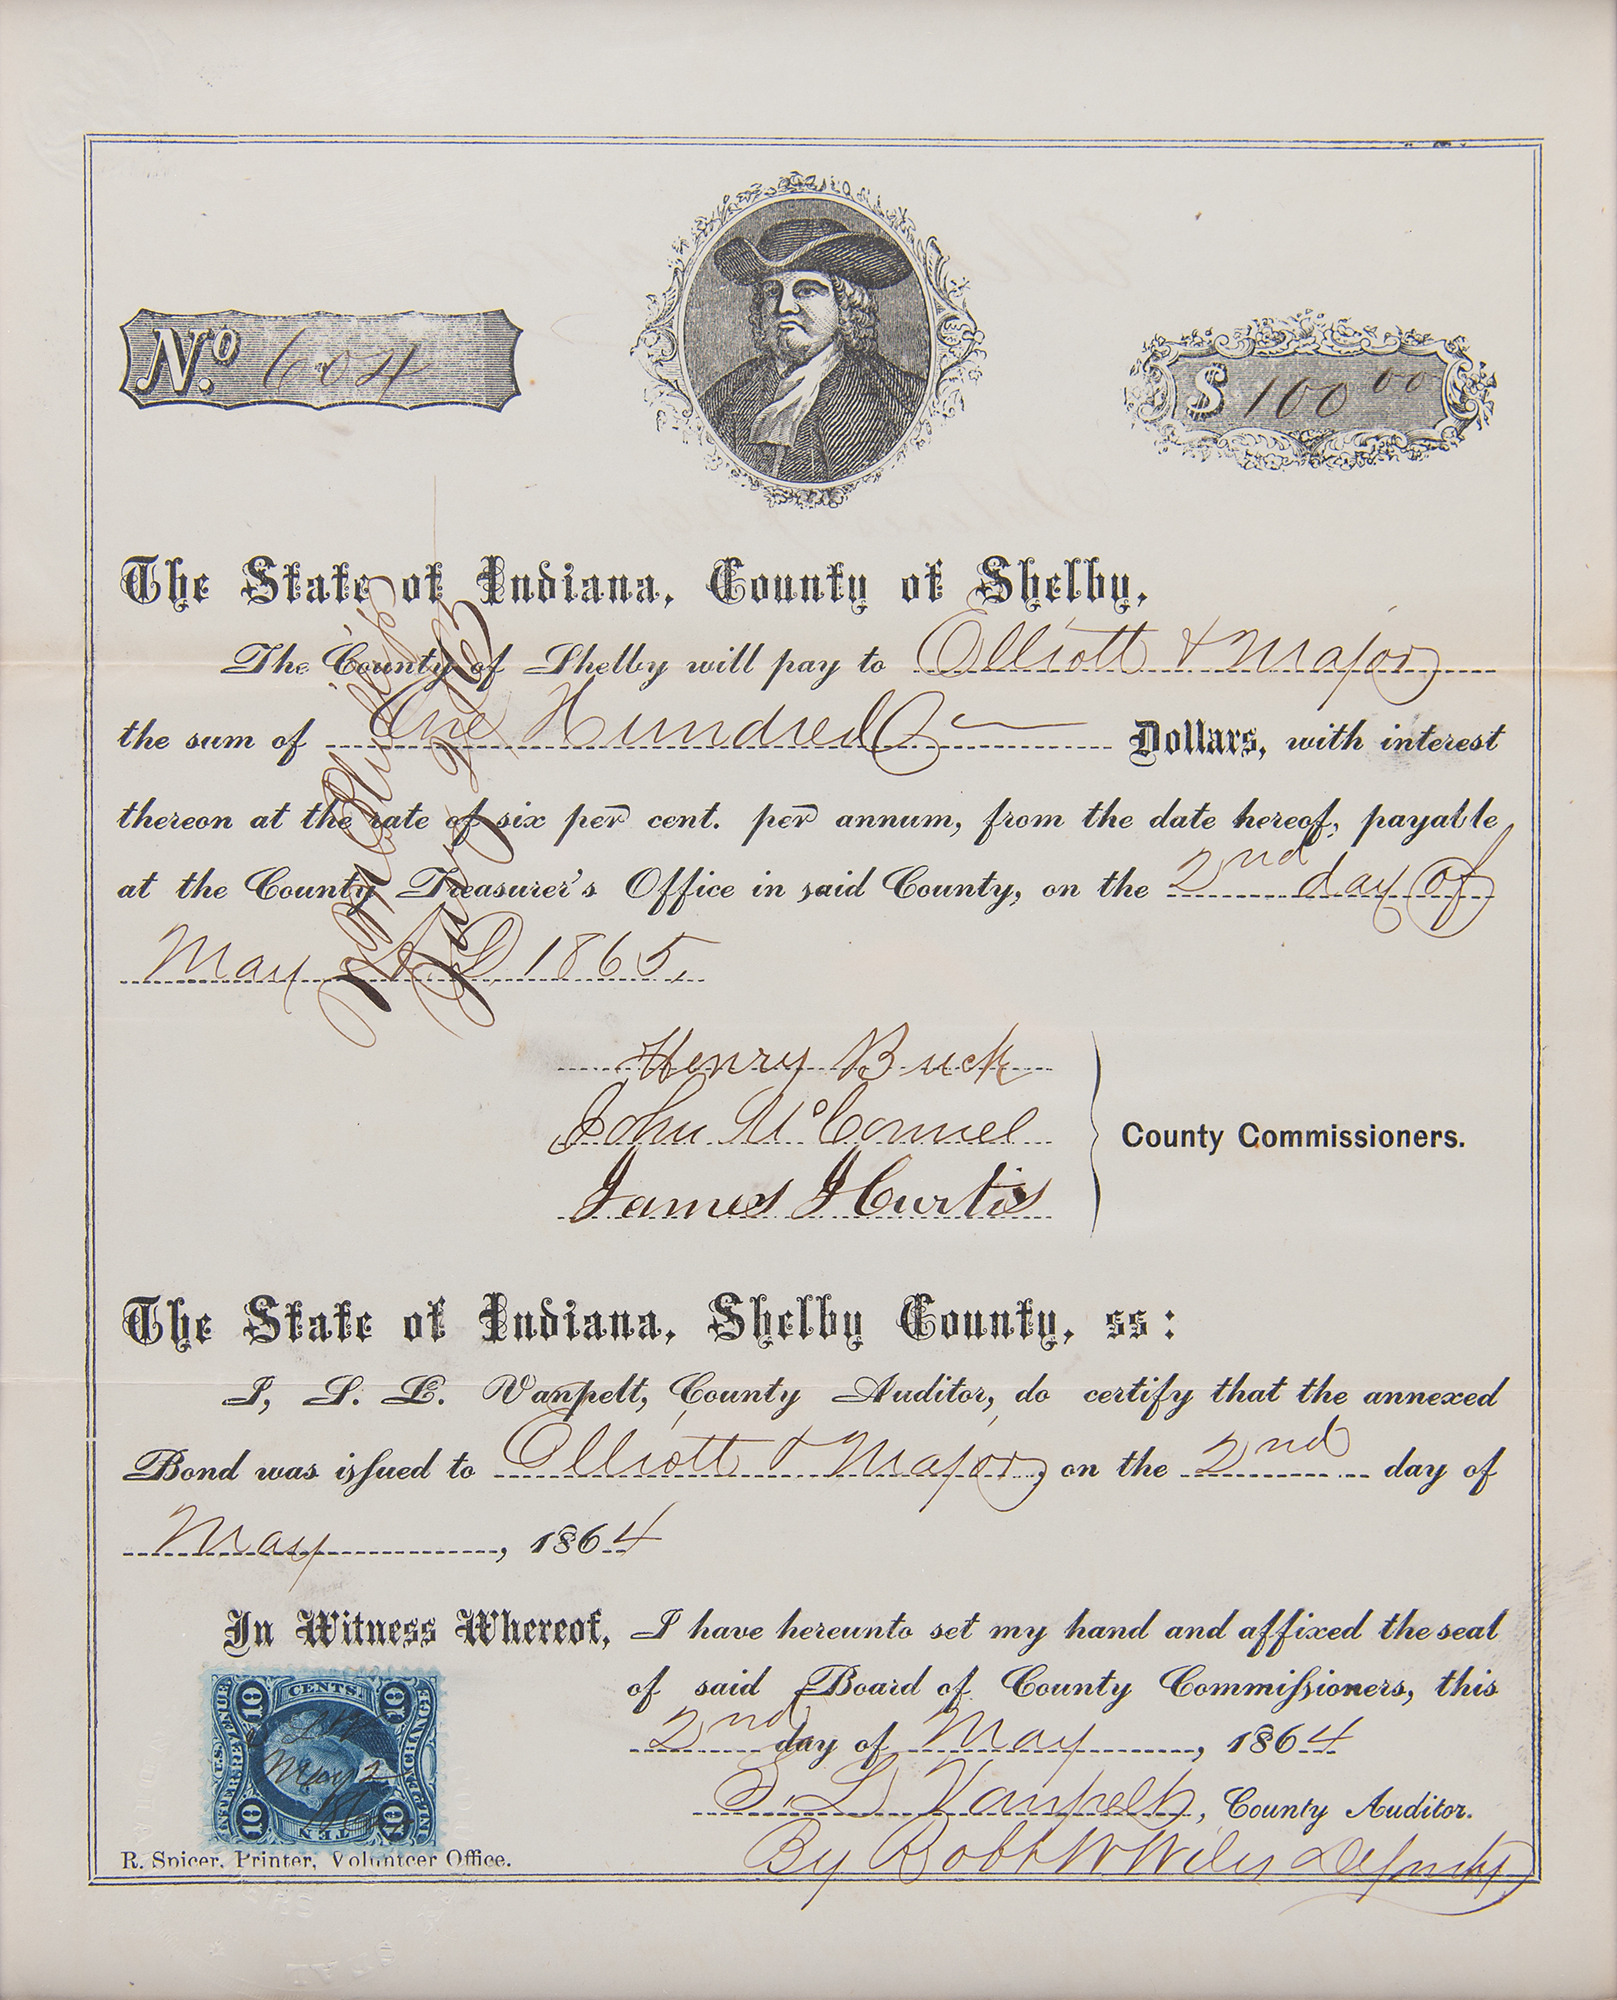 No. 604
$ 100 00
The State of Indiana, County of Shelby,
The County of Shelby will pay to Elliott & Major
the sum of One Hundred Dollars, with interest
thereon at the rate of six per cent. per annum, from the date hereof, payable
at the County Treasurer's Office in said County, on the 2nd day of
May A.D. 1865,
Henry Buck
John McConnel
James J Curtis
County Commissioners.
The State of Indiana, Shelby County, ss:
I, S. L. Vanpelt, County Auditor, do certify that the annexed
Bond was issued to Elliott & Major, on the 2nd day of
May, 1864
In Witness Whereof, I have hereunto set my hand and affixed the seal
of said Board of County Commissioners, this
2nd day of May, 1864
S. L. Vanpelt, County Auditor.
By Robt W Wiles Deputy
U.S. INTER. REVENUE
10 CENTS. 10
INLAND EXCHANGE
May 2
10 TEN 10
R. Spicer, Printer, Volunteer Office.